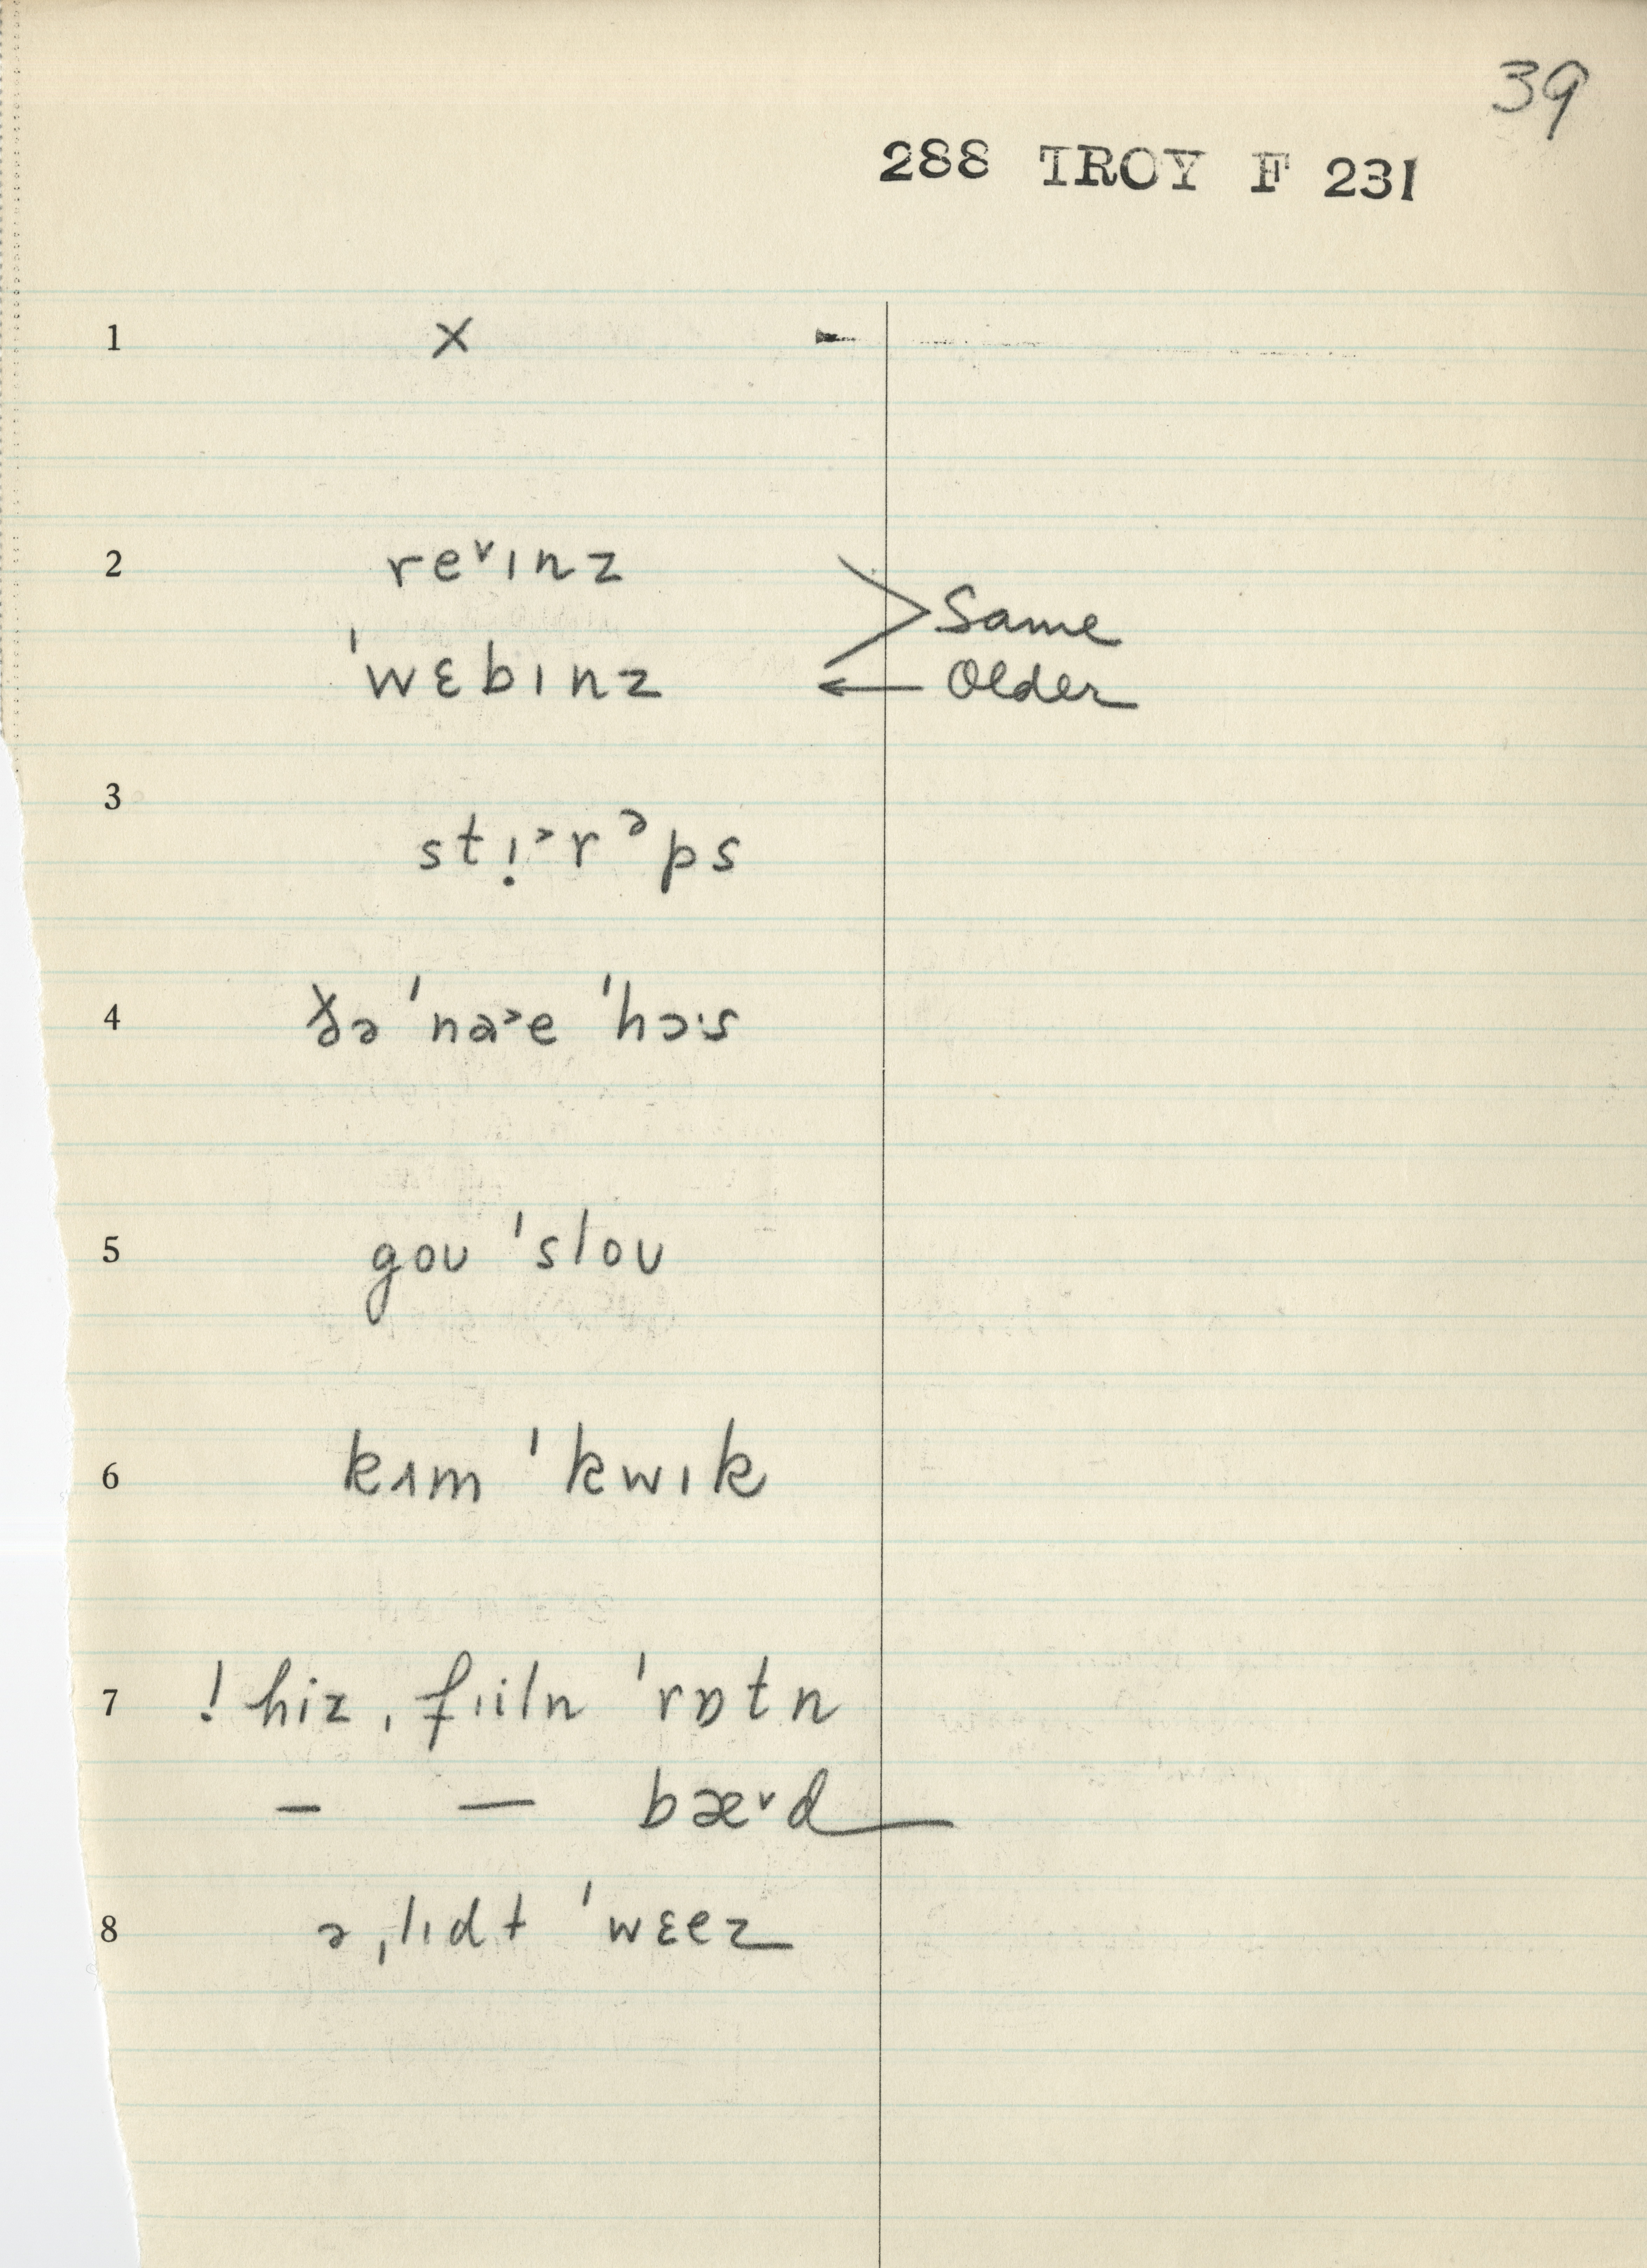 39
288 TROY F 231
1 x -
2 reᵛɪnz
Same
ˈwɛbɪnz ← Older
3 stɪ̣˃rᵊps
4 ðə ˈna˃e ˈhɔ·s
5 goʊ ˈsloʊ
6 kʌm ˈkwɪk
7 ! hiz ˌfɪiln ˈrɒtn
– — bæᵛd
8 ə ˌlɪdt ˈwɛez